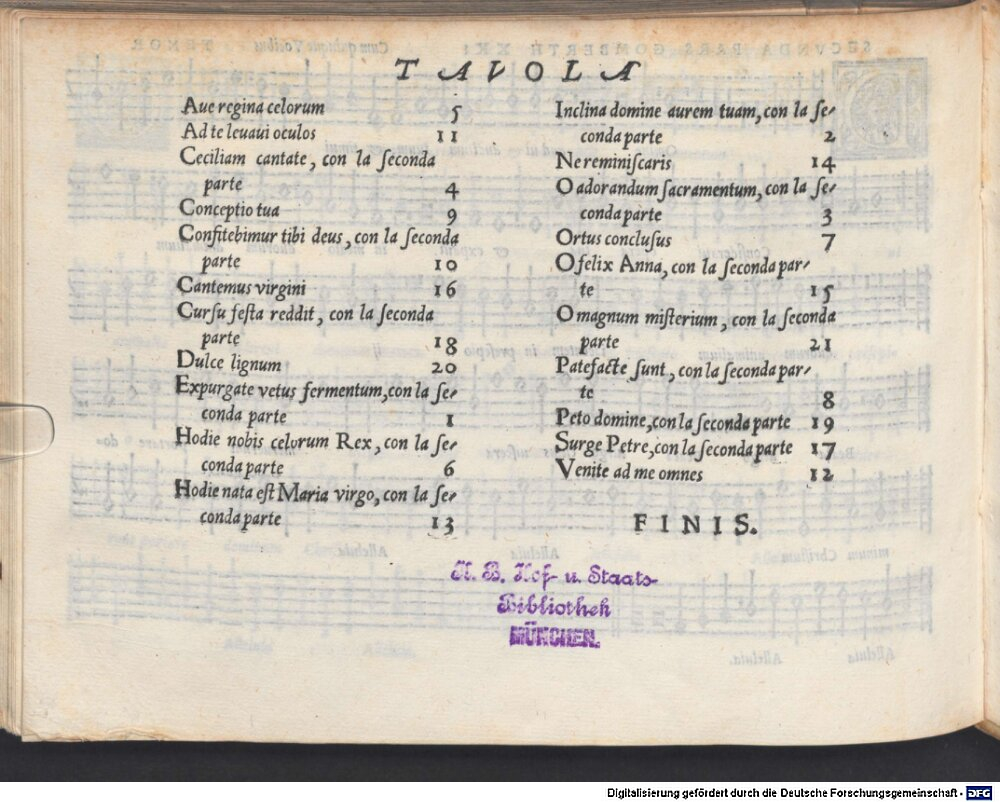 TAVOLA
Aue regina celorum 5
Ad te leuaui oculos 11
Ceciliam cantate, con la ſeconda
parte 4
Conceptio tua 9
Confitebimur tibi deus, con la ſeconda
parte 10
Cantemus virgini 16
Curſu feſta reddit, con la ſeconda
parte 18
Dulce lignum 20
Expurgate vetus fermentum, con la ſe-
conda parte 1
Hodie nobis celorum Rex, con la ſe-
conda parte 6
Hodie nata eſt Maria virgo, con la ſe-
conda parte 13
Inclina domine aurem tuam, con la ſe-
conda parte 2
Ne reminiſcaris 14
O adorandum ſacramentum, con la ſe-
conda parte 3
Ortus concluſus 7
O felix Anna, con la ſeconda par-
te 15
O magnum miſterium, con la ſeconda
parte 21
Patefacte ſunt, con la ſeconda par-
te 8
Peto domine, con la ſeconda parte 19
Surge Petre, con la ſeconda parte 17
Venite ad me omnes 12
FINIS.
K. B. Hof- u. Staats-
Bibliothek
MÜNCHEN.
Digitalisierung gefördert durch die Deutsche Forschungsgemeinschaft - DFG